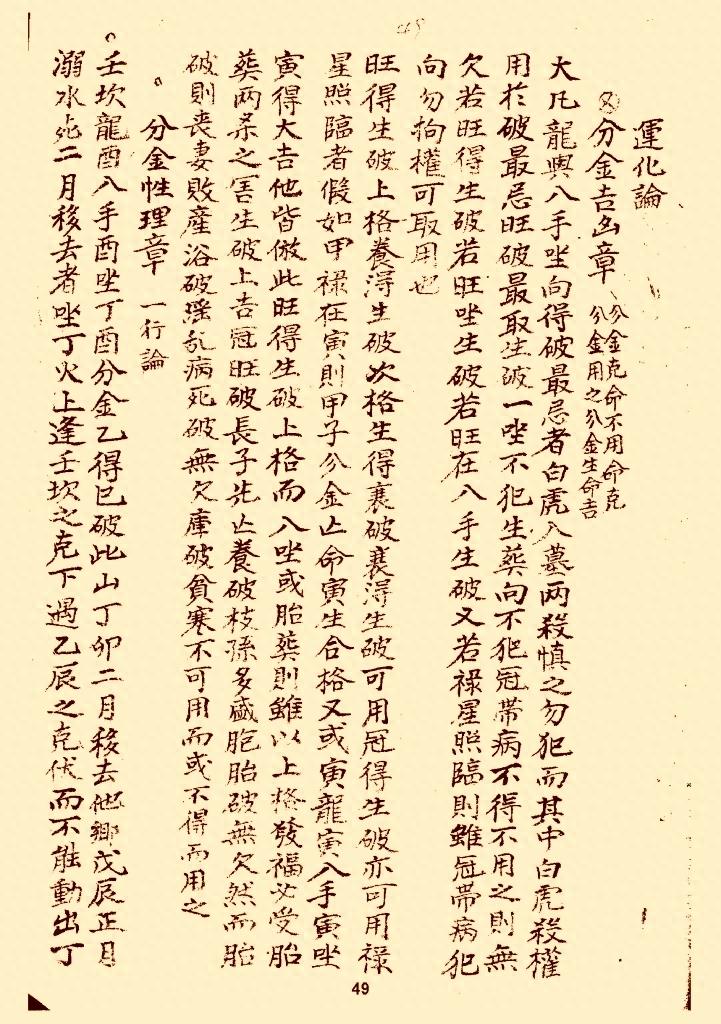 運化論
分金吉凶章 分金克命不用命克
分金用之分金生命吉
大凡龍與八手坐向得破最忌者白虎入墓兩殺慎之勿犯而其中白虎殺權
用於破最忌旺破最取生破一坐不犯生葬向不犯冠帶病不得不用之則無
欠若旺得生破若旺坐生破若旺在八手生破又若祿星照臨則雖冠帶病犯
向勿拘權可取用也
旺得生破上格養淂生破次格生得衰破衰淂生破可用冠得生破亦可用祿
星照臨者假如甲祿在寅則甲子分金亡命寅生合格又或寅龍寅八手寅坐
寅得大吉他皆倣此旺得生破上格而入坐或胎葬則雖以上格發福必受胎
葬兩杀之害生破上吉冠旺破長子先亡養破枝孫多盛胞胎破無欠然而胎
破則喪妻敗産浴破滛乱病死破無欠庫破貧寒不可用而或不得而用之
分金性理章 一行論
壬坎龍酉八手酉坐丁酉分金乙得巳破此山丁卯二月移去他鄉戊辰正月
溺水死二月移去者坐丁火上逢壬坎之克下遇乙辰之克伏而不能動出丁
49